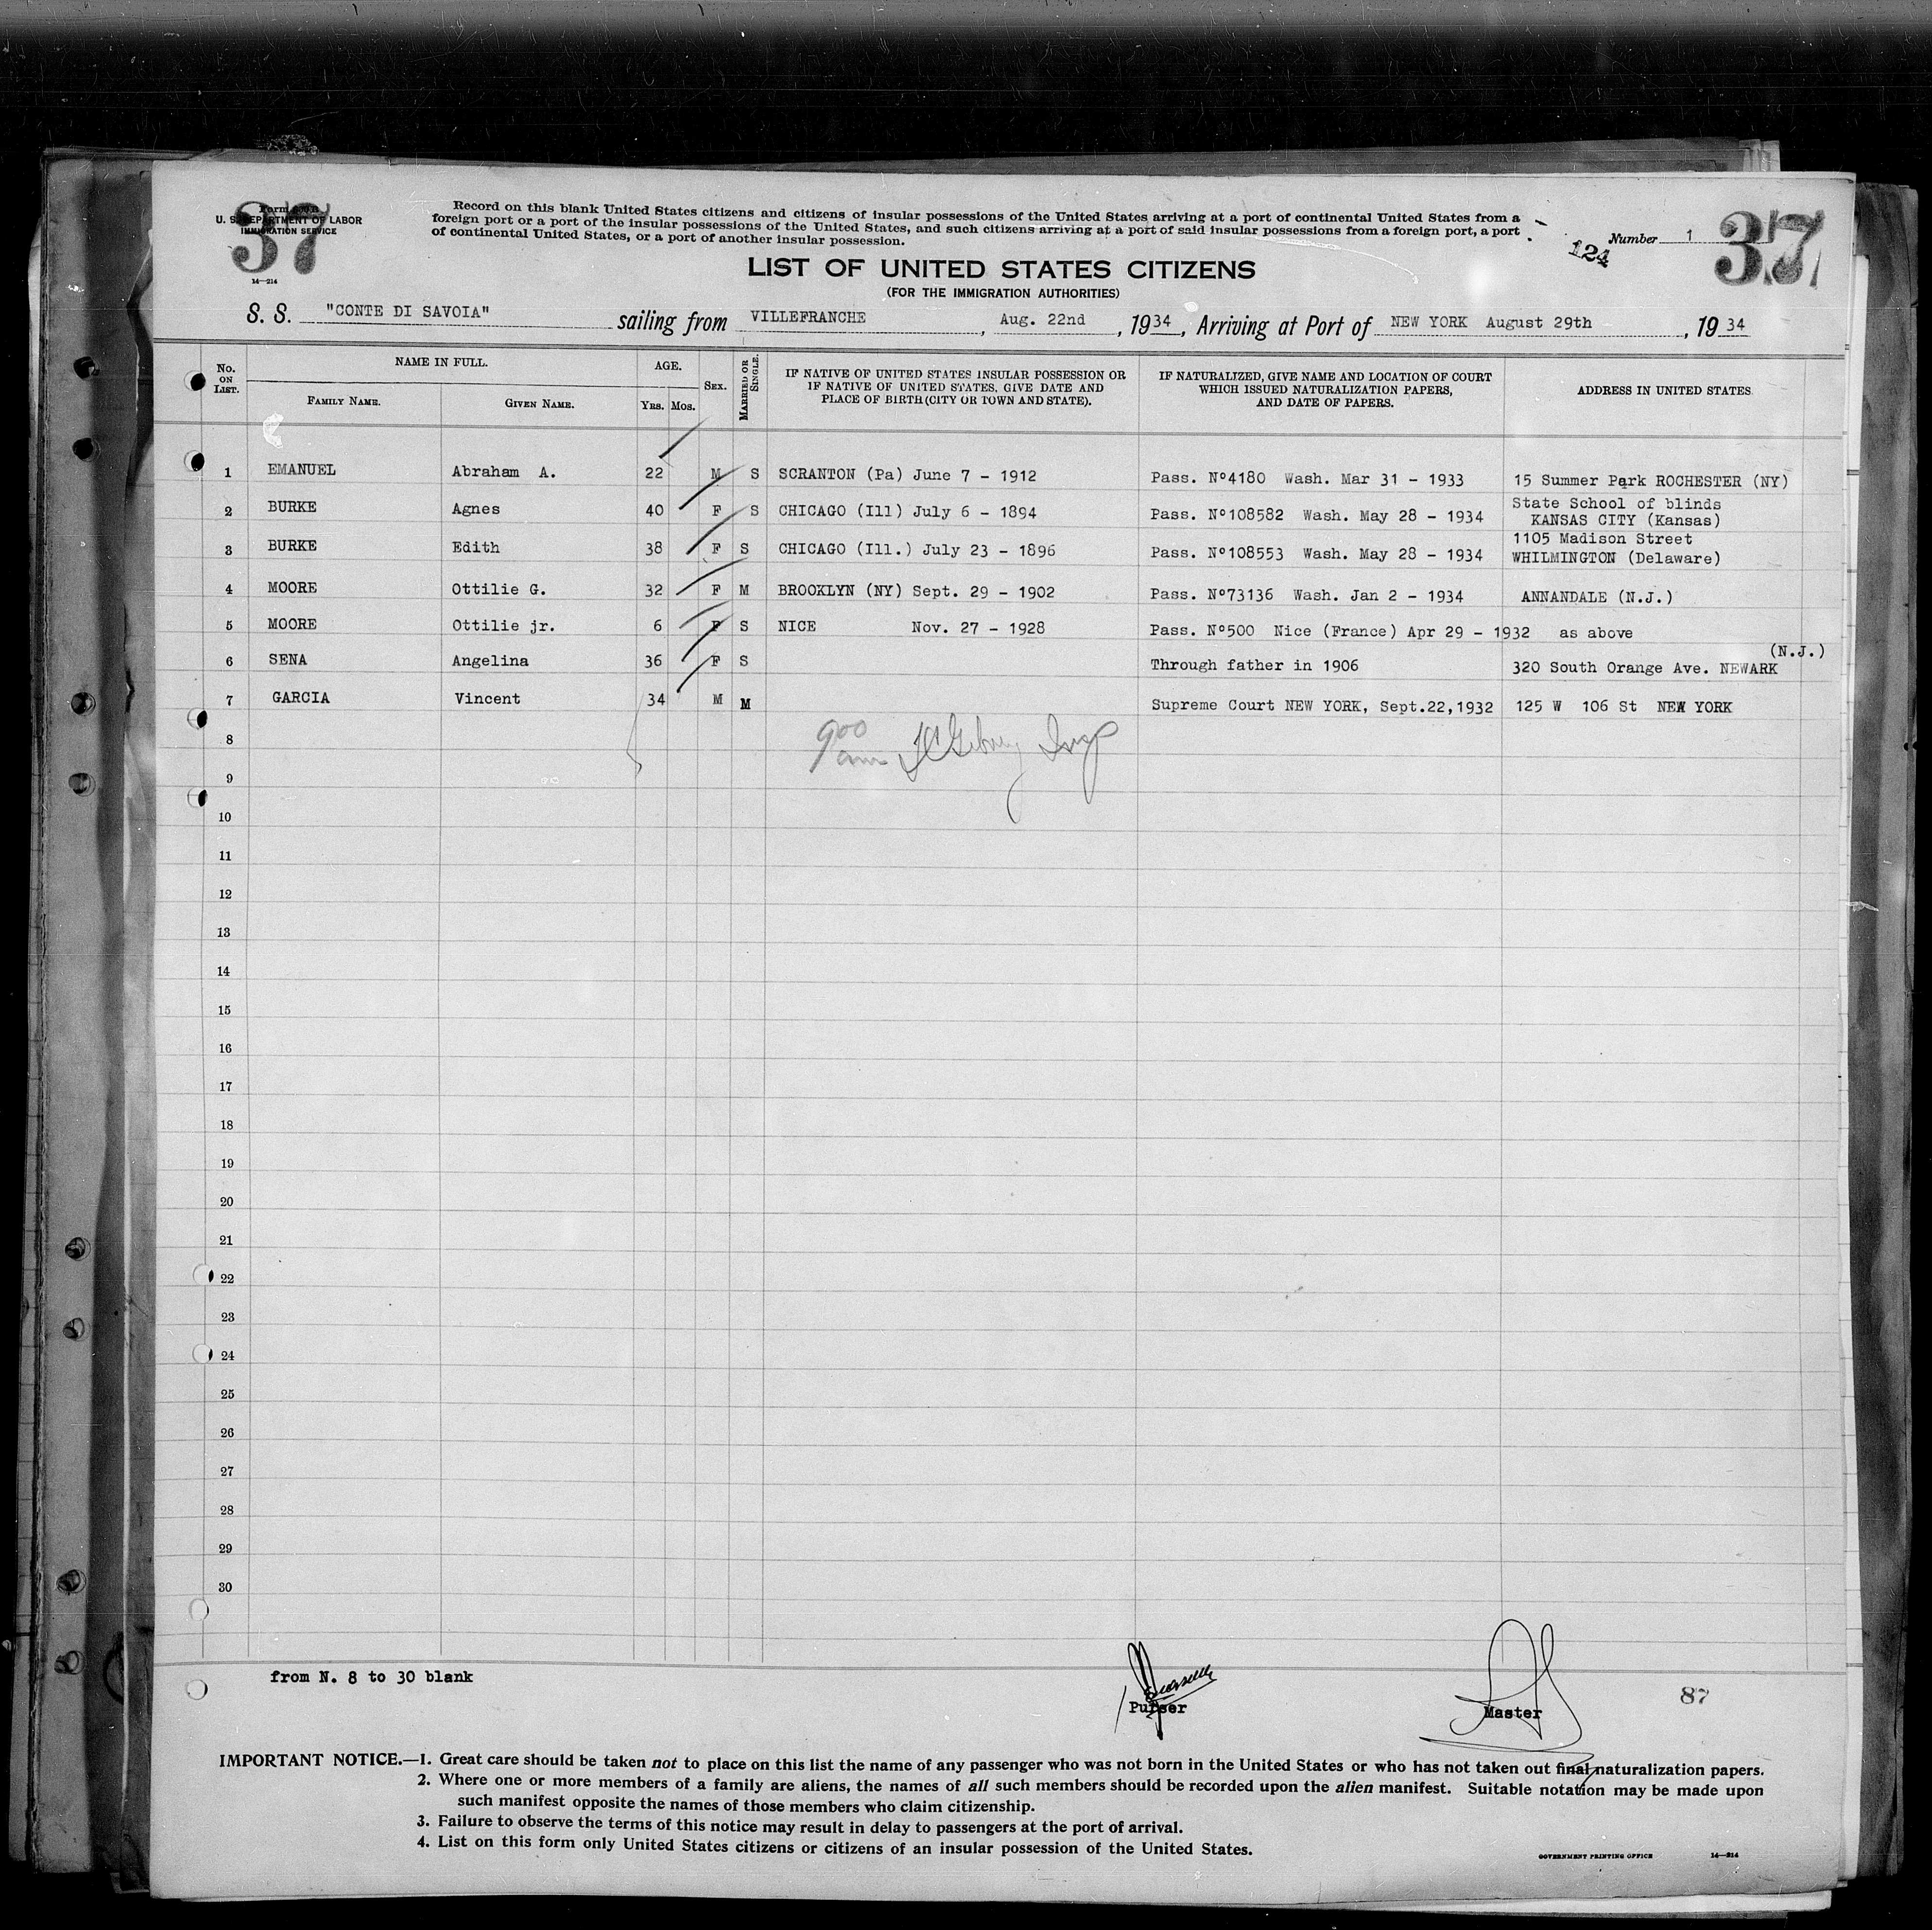 37
U. S. DEPARTMENT OF LABOR
IMMIGRATION SERVICE
14—214
Record on this blank United States citizens and citizens of insular possessions of the United States arriving at a port of continental United States from a
foreign port or a port of the insular possessions of the United States, and such citizens arriving at a port of said insular possessions from a foreign port, a port
of continental United States, or a port of another insular possession.
124
Number 1
37
LIST OF UNITED STATES CITIZENS
(FOR THE IMMIGRATION AUTHORITIES)
S. S. "CONTE DI SAVOIA" sailing from VILLEFRANCHE, Aug. 22nd, 1934, Arriving at Port of NEW YORK August 29th, 1934
No. ON LIST. NAME IN FULL. AGE. SEX. MARRIED OR SINGLE. IF NATIVE OF UNITED STATES INSULAR POSSESSION OR IF NATIVE OF UNITED STATES, GIVE DATE AND PLACE OF BIRTH (CITY OR TOWN AND STATE). IF NATURALIZED, GIVE NAME AND LOCATION OF COURT WHICH ISSUED NATURALIZATION PAPERS, AND DATE OF PAPERS. ADDRESS IN UNITED STATES
FAMILY NAME. GIVEN NAME. YRS. MOS.
1 EMANUEL Abraham A. 22 M S SCRANTON (Pa) June 7 - 1912 Pass. Nº4180 Wash. Mar 31 - 1933 15 Summer Park ROCHESTER (NY)
2 BURKE Agnes 40 F S CHICAGO (Ill) July 6 - 1894 Pass. Nº108582 Wash. May 28 - 1934 State School of blinds
KANSAS CITY (Kansas)
3 BURKE Edith 38 F S CHICAGO (Ill.) July 23 - 1896 Pass. Nº108553 Wash. May 28 - 1934 1105 Madison Street
WHILMINGTON (Delaware)
4 MOORE Ottilie G. 32 F M BROOKLYN (NY) Sept. 29 - 1902 Pass. Nº73136 Wash. Jan 2 - 1934 ANNANDALE (N.J.)
5 MOORE Ottilie jr. 6 F S NICE Nov. 27 - 1928 Pass. Nº500 Nice (France) Apr 29 - 1932 as above
(N.J.)
6 SENA Angelina 36 F S Through father in 1906 320 South Orange Ave. NEWARK
7 GARCIA Vincent 34 M M Supreme Court NEW YORK, Sept.22,1932 125 W 106 St NEW YORK
8
900 am Insp
9
10
11
12
13
14
15
16
17
18
19
20
21
22
23
24
25
26
27
28
29
30
from N. 8 to 30 blank
Purser
Master
87
IMPORTANT NOTICE.—1. Great care should be taken not to place on this list the name of any passenger who was not born in the United States or who has not taken out final naturalization papers.
2. Where one or more members of a family are aliens, the names of all such members should be recorded upon the alien manifest. Suitable notation may be made upon
such manifest opposite the names of those members who claim citizenship.
3. Failure to observe the terms of this notice may result in delay to passengers at the port of arrival.
4. List on this form only United States citizens or citizens of an insular possession of the United States.
GOVERNMENT PRINTING OFFICE 14—214